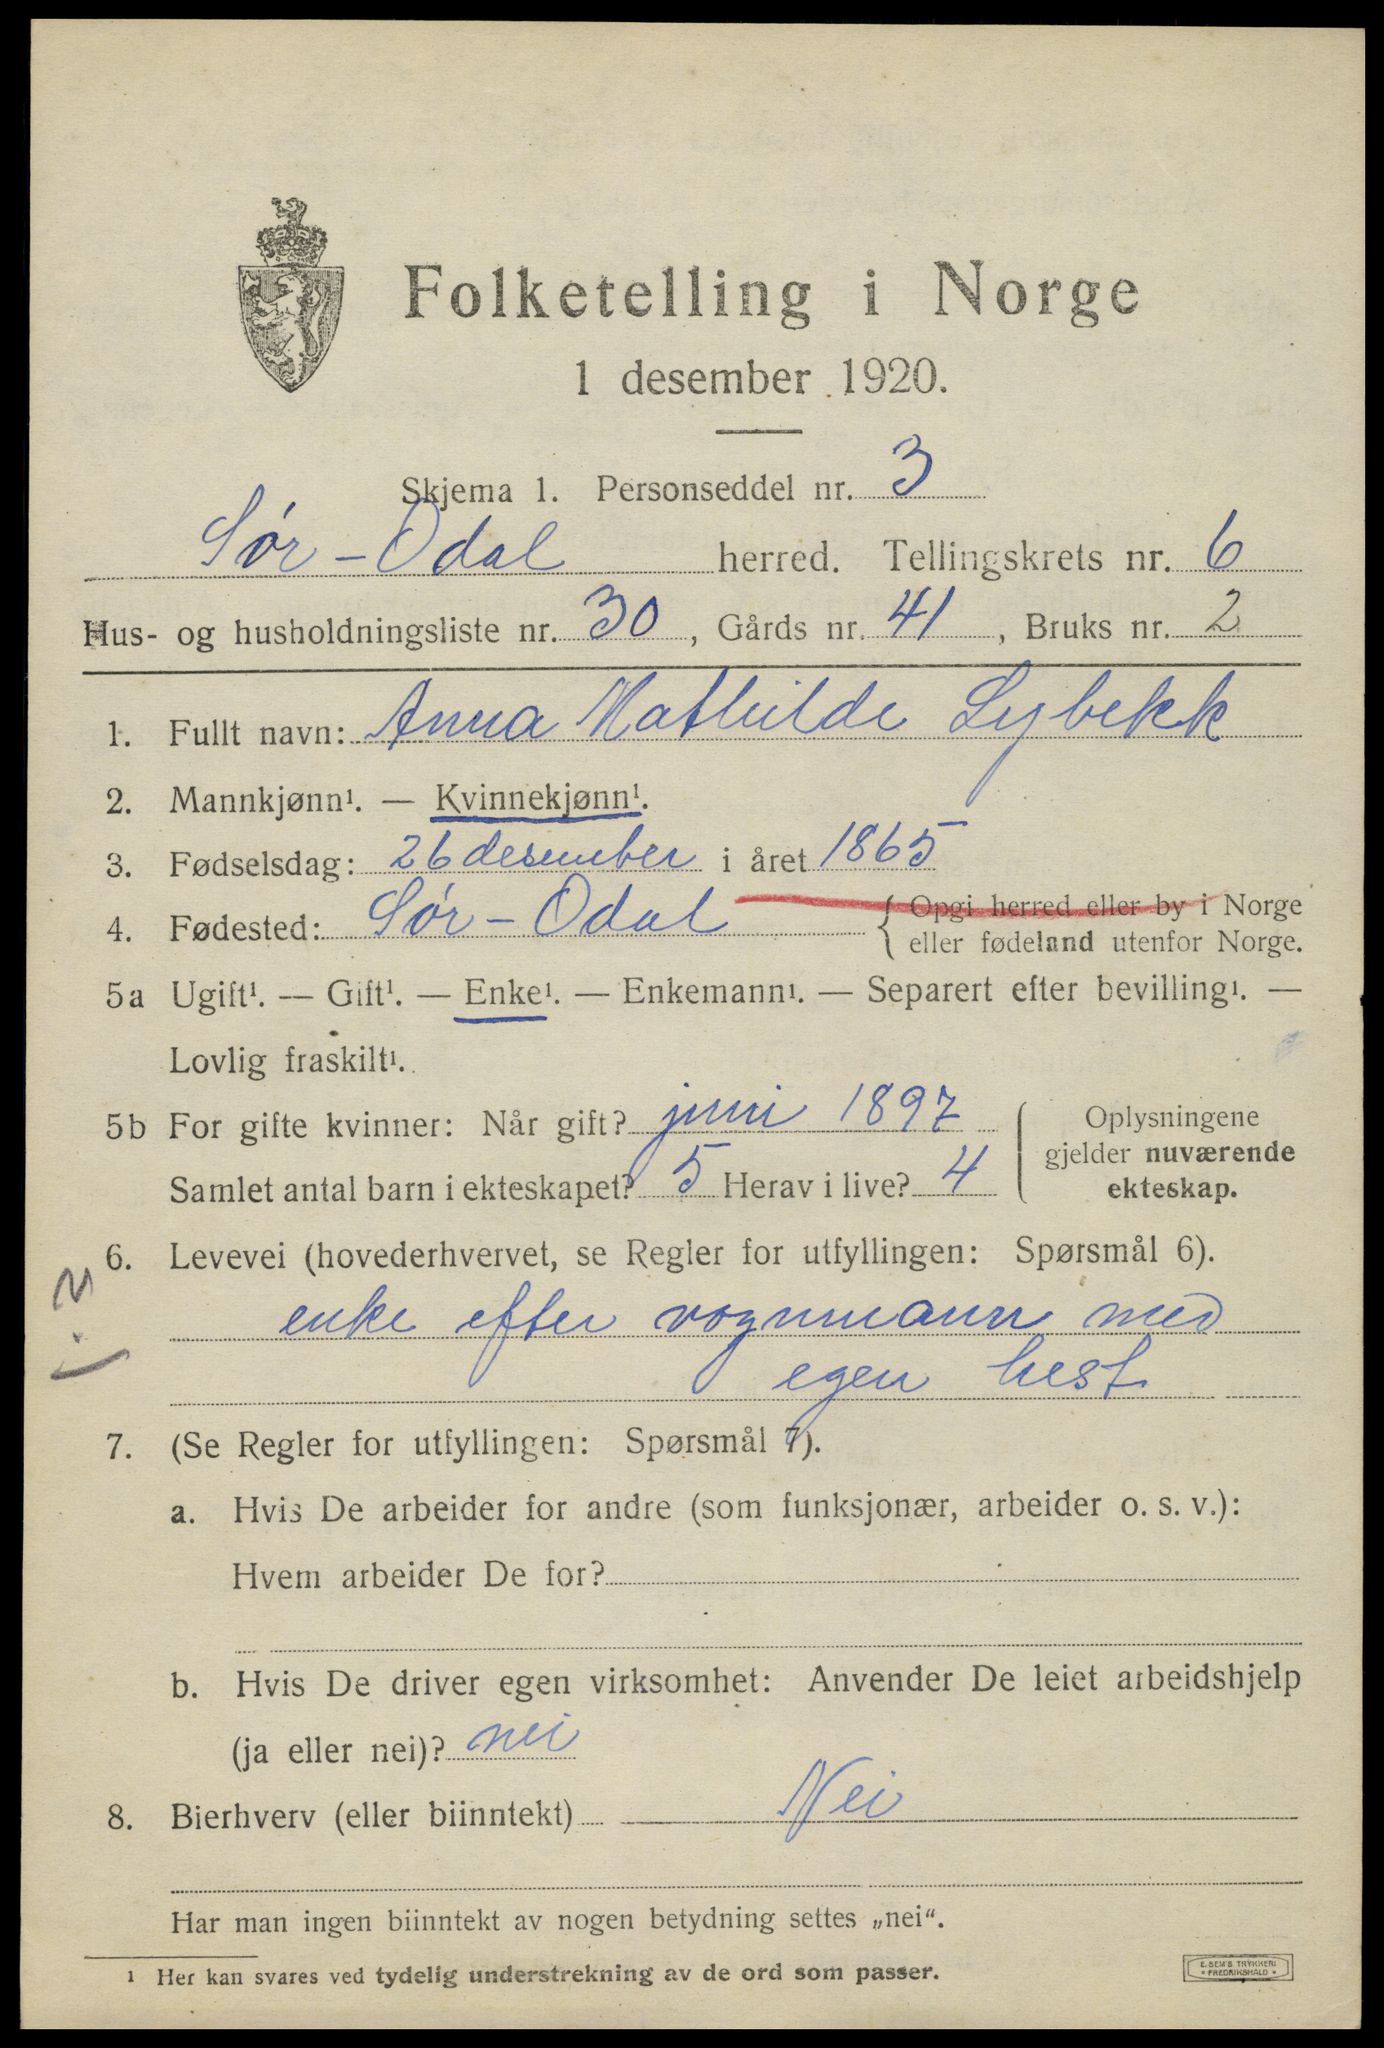 Folketelling i Norge
1 desember 1920.
Skjema 1. Personseddel nr. 3
Sør-Odal herred. Tellingskrets nr. 6
Hus- og husholdningsliste nr. 30, Gårds nr. 41, Bruks nr. 2
1. Fullt navn: Anna Mathilde Lybekk
2. Mannkjønn¹. — Kvinnekjønn¹.
3. Fødselsdag: 26 desember i året 1865
4. Fødested: Sør-Odal { Opgi herred eller by i Norge
eller fødeland utenfor Norge.
5a Ugift¹. — Gift¹. — Enke¹. — Enkemann¹. — Separert efter bevilling¹. —
Lovlig fraskilt¹.
5b For gifte kvinner: Når gift? juni 1897
Samlet antal barn i ekteskapet? 5 Herav i live? 4
Oplysningene
gjelder nuværende
ekteskap.
6. Levevei (hovederhvervet, se Regler for utfyllingen: Spørsmål 6).
enke efter vognmann med
egen hest
7. (Se Regler for utfyllingen: Spørsmål 7).
a. Hvis De arbeider for andre (som funksjonær, arbeider o. s. v.):
Hvem arbeider De for?
b. Hvis De driver egen virksomhet: Anvender De leiet arbeidshjelp
(ja eller nei)? nei
8. Bierhverv (eller biinntekt) Nei
Har man ingen biinntekt av nogen betydning settes „nei“.
¹ Her kan svares ved tydelig understrekning av de ord som passer.
E. SEM'S TRYKKERI
• FREDRIKSHALD •